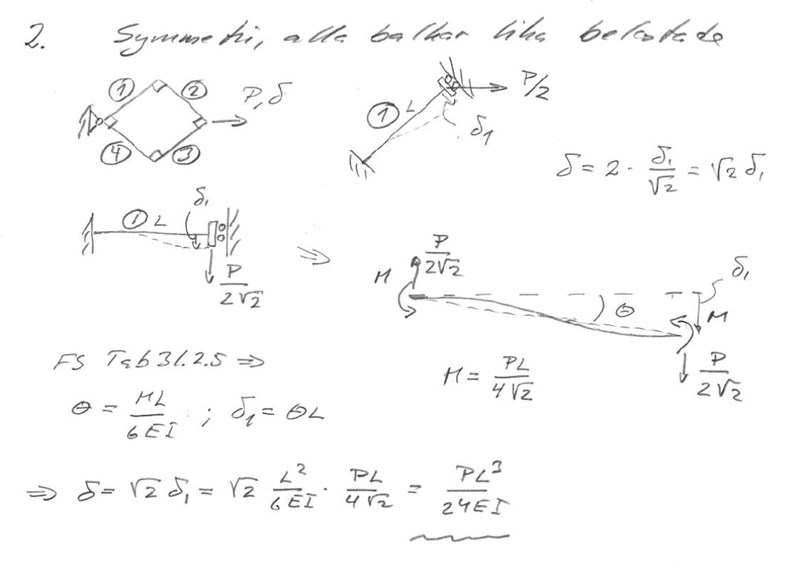 2. Symmetri, alla balkar lika belastade
① ② P, δ
④ ③
① L P/2
δ₁
δ = 2 · δ₁/√2 = √2 δ₁
① L δ₁
P/2√2
⇒
M P/2√2 θ δ₁ M
P/2√2
M = PL/4√2
FS Tab 31.2.5 ⇒
θ = ML/6EI ; δ₁ = θL
⇒ δ = √2 δ₁ = √2 L²/6EI · PL/4√2 = PL³/24EI